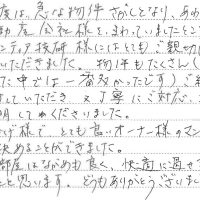 度は、急な物件さがしとなり、あわ
動産会社様を、まわっていましたところ
ンテック技研様にはとてもご親切に
いただきました。物件もたくさん(
た中では一番多かったです)ご紹
していただき、又丁寧にご対応、
明してくださいました。
かげ様で、とても良いオーナー様のマン
決めることができました。
部屋はながめも良く、快適に過せそ
と思います。どうもありがとうございまし